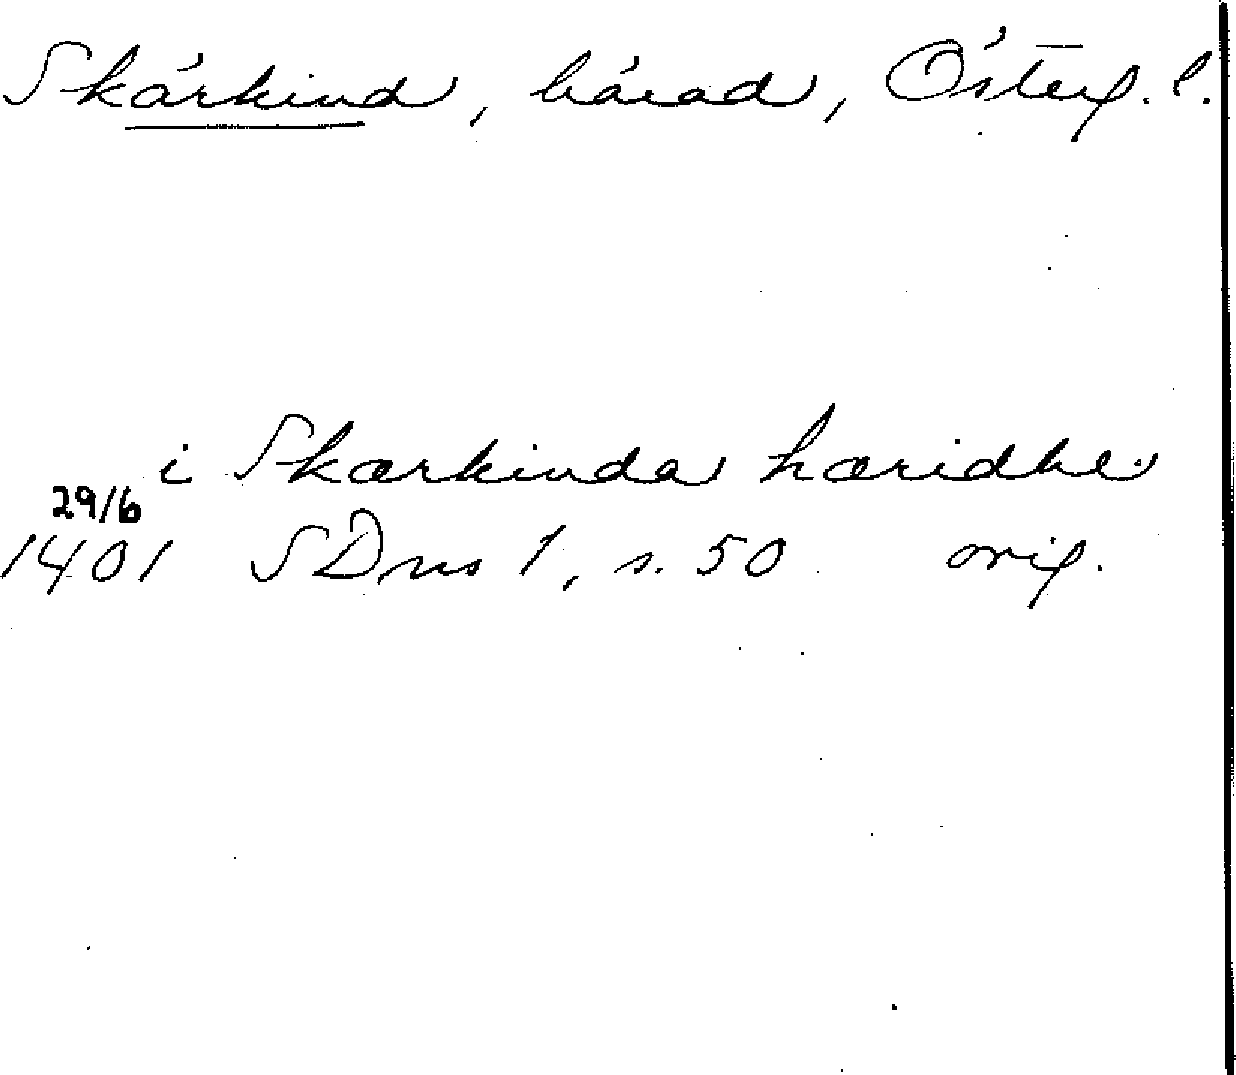 Skärkind, härad, Österg. l.
i Skærkinda hæridhe
29/6
1401 SDns 1, s. 50 orig.